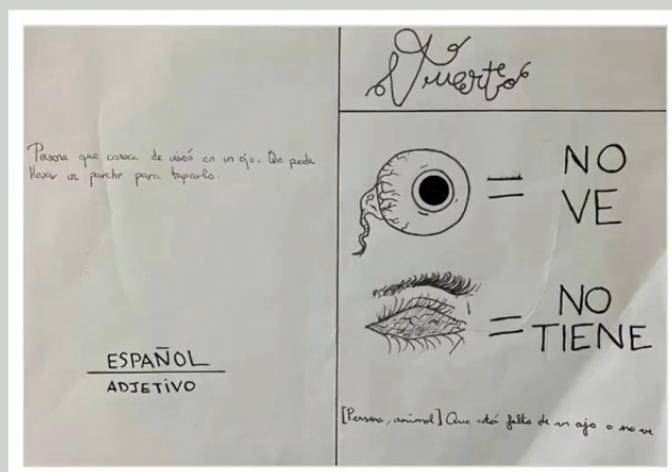 Persona que careca de visió en un ojo. Que puede
llevar un parche para taparlo.
ESPAÑOL
ADJETIVO
Tuerto
= NO
VE
= NO
TIENE
[Persona, animal] Que está falto de un ojo o no ve